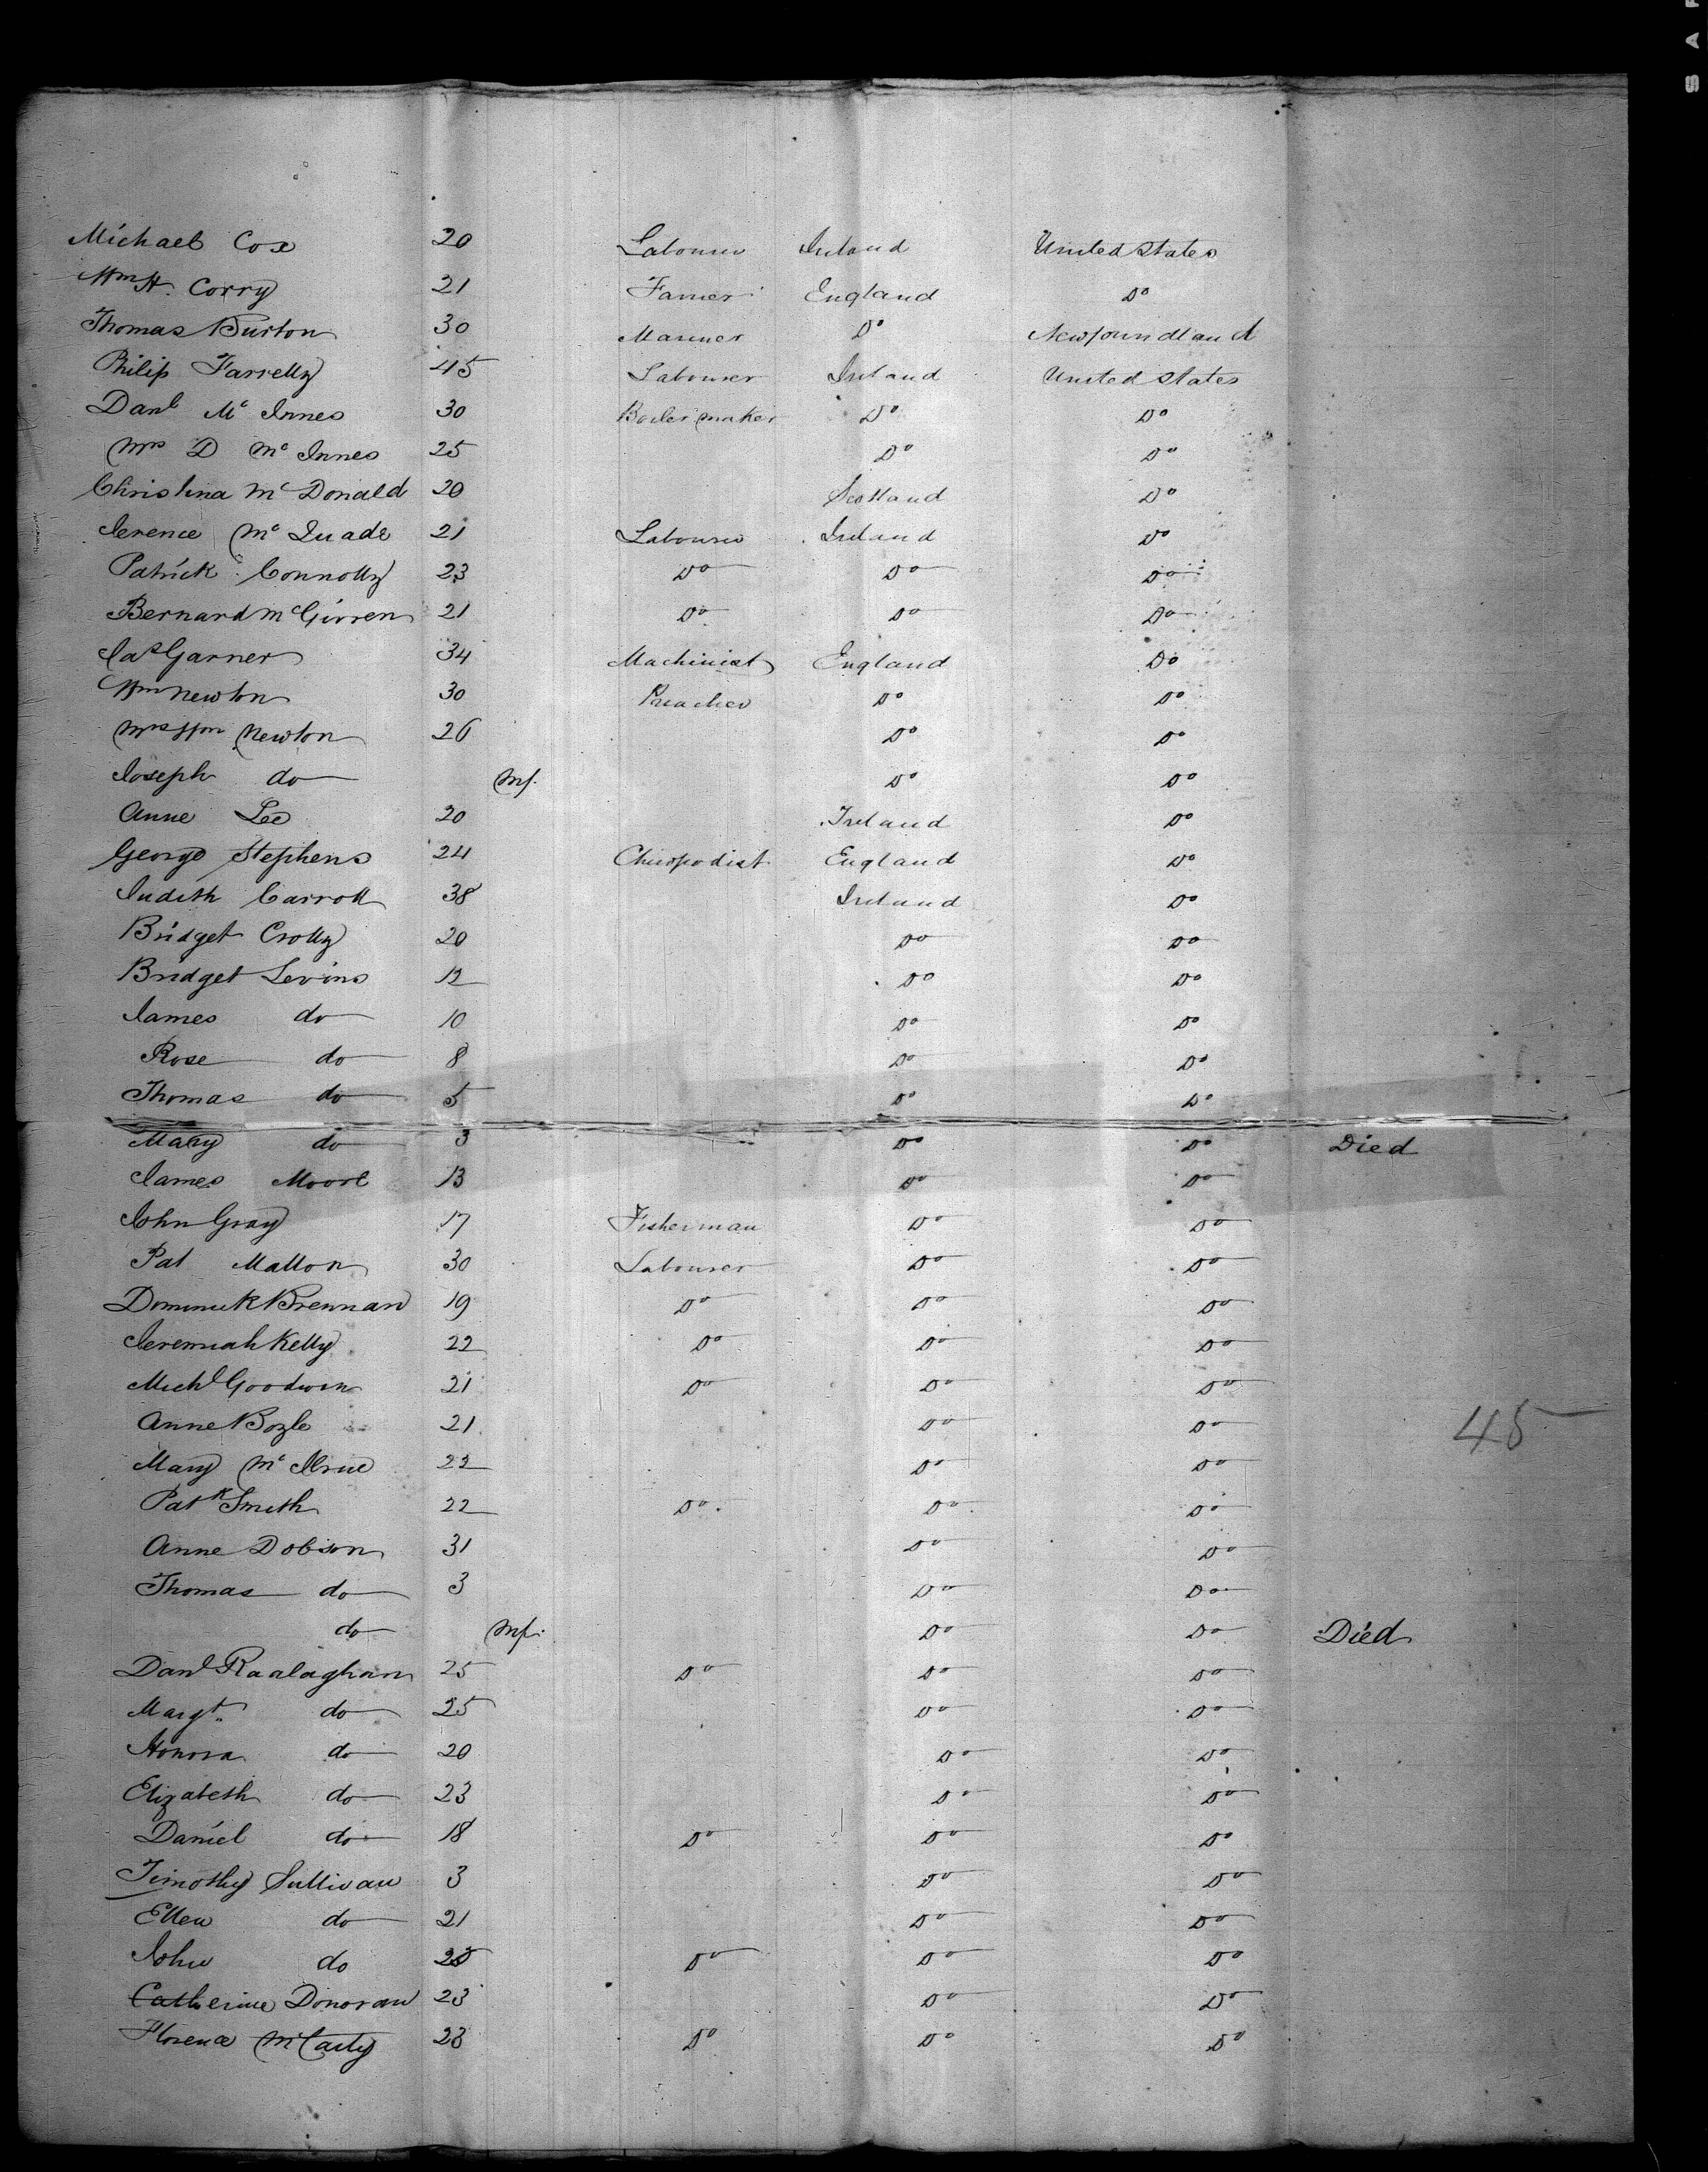 S A F
Michael Cox 20 Labourer Ireland United States
Wm H. Corry 21 Farmer England Do
Thomas Burton 30 Mariner Do Newfoundland
Philip Farrelly 45 Labourer Ireland United States
Danl Mc Innes 30 Boiler maker Do Do
Mrs D Mc Innes 25 Do Do
Christina Mc Donald 20 Scotland Do
Terence Mc Quade 21 Labourer Ireland Do
Patrick Connolly 23 Do Do Do
Bernard McGivren 21 Do Do Do
Jas Garner 34 Machinist England Do
Wm Newton 30 Preacher Do Do
Mrs Wm Newton 26 Do Do
Joseph do Inf. Do Do
Anne Lee 20 Ireland Do
George Stephens 24 Chiropodist England Do
Judith Carroll 38 Ireland Do
Bridget Crolly 20 Do Do
Bridget Levins 12 Do Do
James do 10 Do Do
Rose do 8 Do Do
Thomas do 5 Do Do
Mary do 3 Do Do Died
James Moore 13 Do Do
John Gray 17 Fisherman Do Do
Pat Mallon 30 Labourer Do Do
Dominick Brennan 19 Do Do Do
Jeremiah Kelly 22 Do Do Do
Michl Goodwin 21 Do Do Do
Anne Bogle 21 Do Do
45
Mary Mc 22 Do Do
Patk Smith 22 Do. Do Do
Anne Dobson 31 Do Do
Thomas do 3 Do Do
do Inf. Do Do Died
Danl Raalaghan 25 Do Do Do
Margt. do 25 Do Do
Honora do 20 Do Do
Elizabeth do 23 Do Do
Daniel do 18 Do Do Do
Timothy Sullivan 3 Do Do
Ellen do 21 Do Do
John do 25 Do Do Do
Catherine Donovan 23 Do Do
Florence McCarty 23 Do Do Do